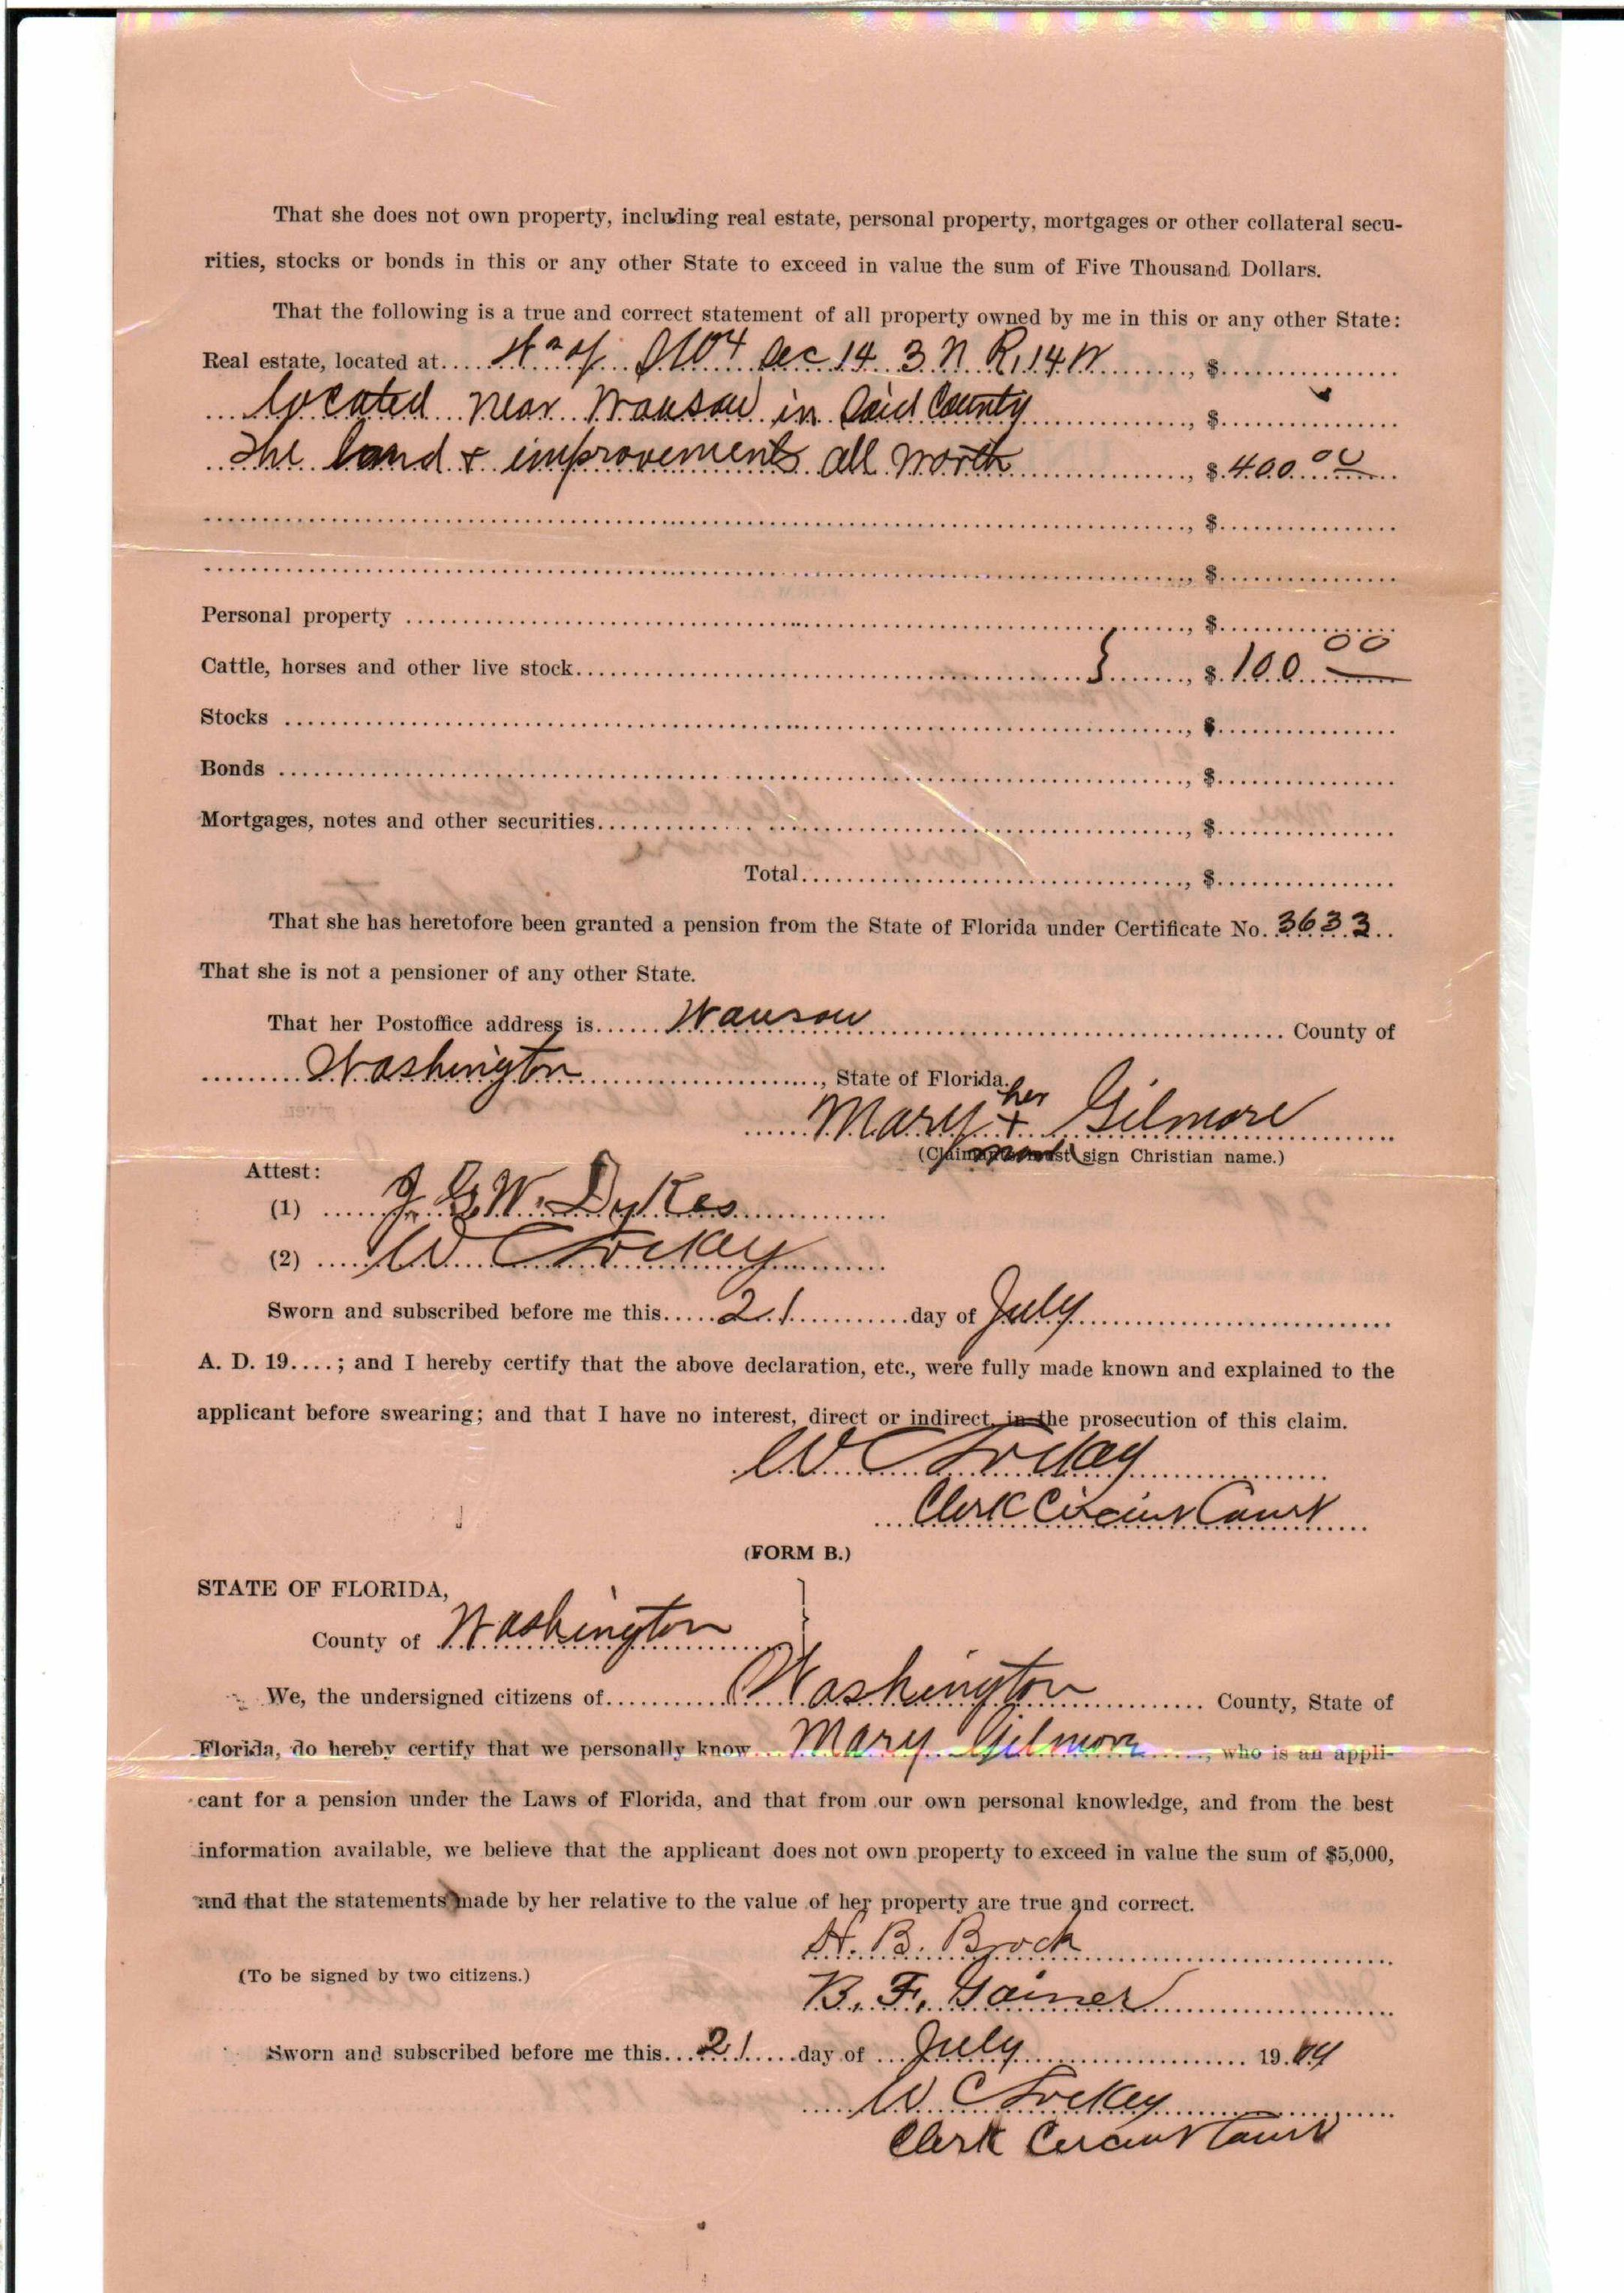 That she does not own property, including real estate, personal property, mortgages or other collateral secu-
rities, stocks or bonds in this or any other State to exceed in value the sum of Five Thousand Dollars.
That the following is a true and correct statement of all property owned by me in this or any other State:
Real estate, located at.... of Sec 14 3 N R, 14 W ......, $......
located near Wausau in Said County ......, $......
The land & improvements all worth ......, $ 400.00
......, $......
......, $......
Personal property ......, $......
Cattle, horses and other live stock...... } ......, $ 100 00
Stocks ......, $......
Bonds ......, $......
Mortgages, notes and other securities......, $......
Total......, $......
That she has heretofore been granted a pension from the State of Florida under Certificate No. 3633
That she is not a pensioner of any other State.
That her Postoffice address is...... Wausau ...... County of
...... Washington ......, State of Florida.
her
Mary + Gilmore
mark
(Claimant must sign Christian name.)
Attest:
(1) J. G. W. Dykes
(2) W C Lockey
Sworn and subscribed before me this..... 21 ......day of July
A. D. 19....; and I hereby certify that the above declaration, etc., were fully made known and explained to the
applicant before swearing; and that I have no interest, direct or indirect, in the prosecution of this claim.
W C Lockey
Clerk Circuit Court
(FORM B.)
STATE OF FLORIDA,
County of Washington }
We, the undersigned citizens of...... Washington ...... County, State of
Florida, do hereby certify that we personally know Mary Gilmore ......, who is an appli-
cant for a pension under the Laws of Florida, and that from our own personal knowledge, and from the best
information available, we believe that the applicant does not own property to exceed in value the sum of $5,000,
and that the statements made by her relative to the value of her property are true and correct.
H. B. Brock
(To be signed by two citizens.)
B. F. Gainer
Sworn and subscribed before me this... 21 .....day of ... July ...... 19.
W C Lockey
Clerk Circuit Court